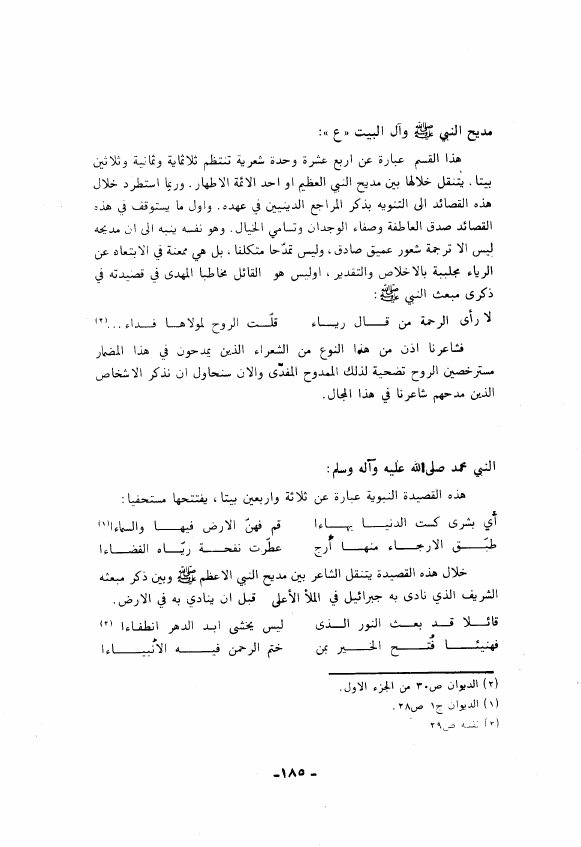 مديح النبي ﷺ وآل البيت « ع »:
هذا القسم عبارة عن اربع عشرة وحدة شعرية تنتظم ثلاثماية وثمانية وثلاثين
بيتا. يتنقل خلالها بين مديح النبي العظيم او احد الائمة الاطهار. وربما استطرد خلال
هذه القصائد الى التنويه بذكر المراجع الدينيين في عهده. واول ما يستوقف في هذه
القصائد صدق العاطفة وصفاء الوجدان وتسامي الخيال. وهو نفسه ينبه الى ان مديحه
ليس الا ترجمة شعور عميق صادق، وليس تمدّحا متكلفا، بل هي ممعنة في الابتعاد عن
الرياء مجلببة بالاخلاص والتقدير، اوليس هو القائل مخاطبا المهدى في قصيدته في
ذكرى مبعث النبي ﷺ:
لا رأى الرحمة من قـــال ريـــاء قلّـت الروح لمولاهـا فـداء...(٢)
فشاعرنا اذن من هذا النوع من الشعراء الذين يمدحون في هذا المضمار
مسترخصين الروح تضحية لذلك الممدوح المفدّى والان سنحاول ان نذكر الاشخاص
الذين مدحهم شاعرنا في هذا المجال.
النبي محمد صلى الله عليه وآله وسلم:
هذه القصيدة النبوية عبارة عن ثلاثة واربعين بيتا، يفتتحها مستحفيا:
أي بشرى كست الدنيـــا بهـاءا قم فهنّ الارض فيهـــا والسماءا(١)
طبّـــق الارجـــاء منهـــا أرج عطّرت نفحـــة ريّـاه الفضـاءا
خلال هذه القصيدة يتنقل الشاعر بين مديح النبي الاعظم ﷺ وبين ذكر مبعثه
الشريف الذي نادى به جبرائيل في الملأ الأعلى قبل ان ينادي به في الارض.
قائـــلا قـــد بعـث النور الـــذى ليس يخشى ابـد الدهر انطفـاءا (٢)
فهنيئـــا فُتـــح الخـــير بمن ختم الرحمن فيـــه الأنبيـــاءا
(٢) الديوان ص٣٠ من الجزء الاول.
(١) الديوان ج١ ص٢٨.
(٢) نفسه ص٢٩
ـ ١٨٥ـ